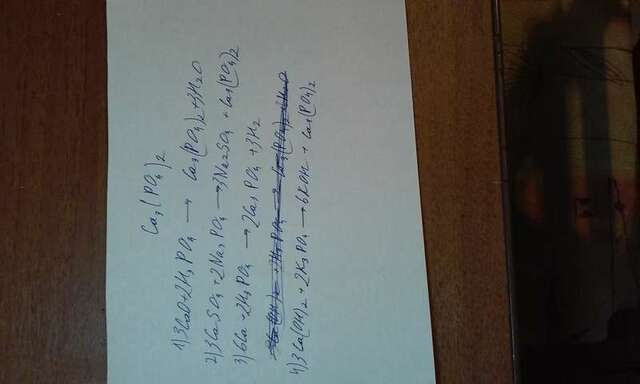 Ca₃(PO₄)₂
1) 3CaO + 2H₃PO₄ → Ca₃(PO₄)₂ + 3H₂O
2) 3CaSO₄ + 2Na₃PO₄ → 3Na₂SO₄ + Ca₃(PO₄)₂
3) 6Ca + 2H₃PO₄ → 2Ca₃PO₄ + 3H₂
4) 3Ca(OH)₂ + 2K₃PO₄ → 6KOH + Ca₃(PO₄)₂